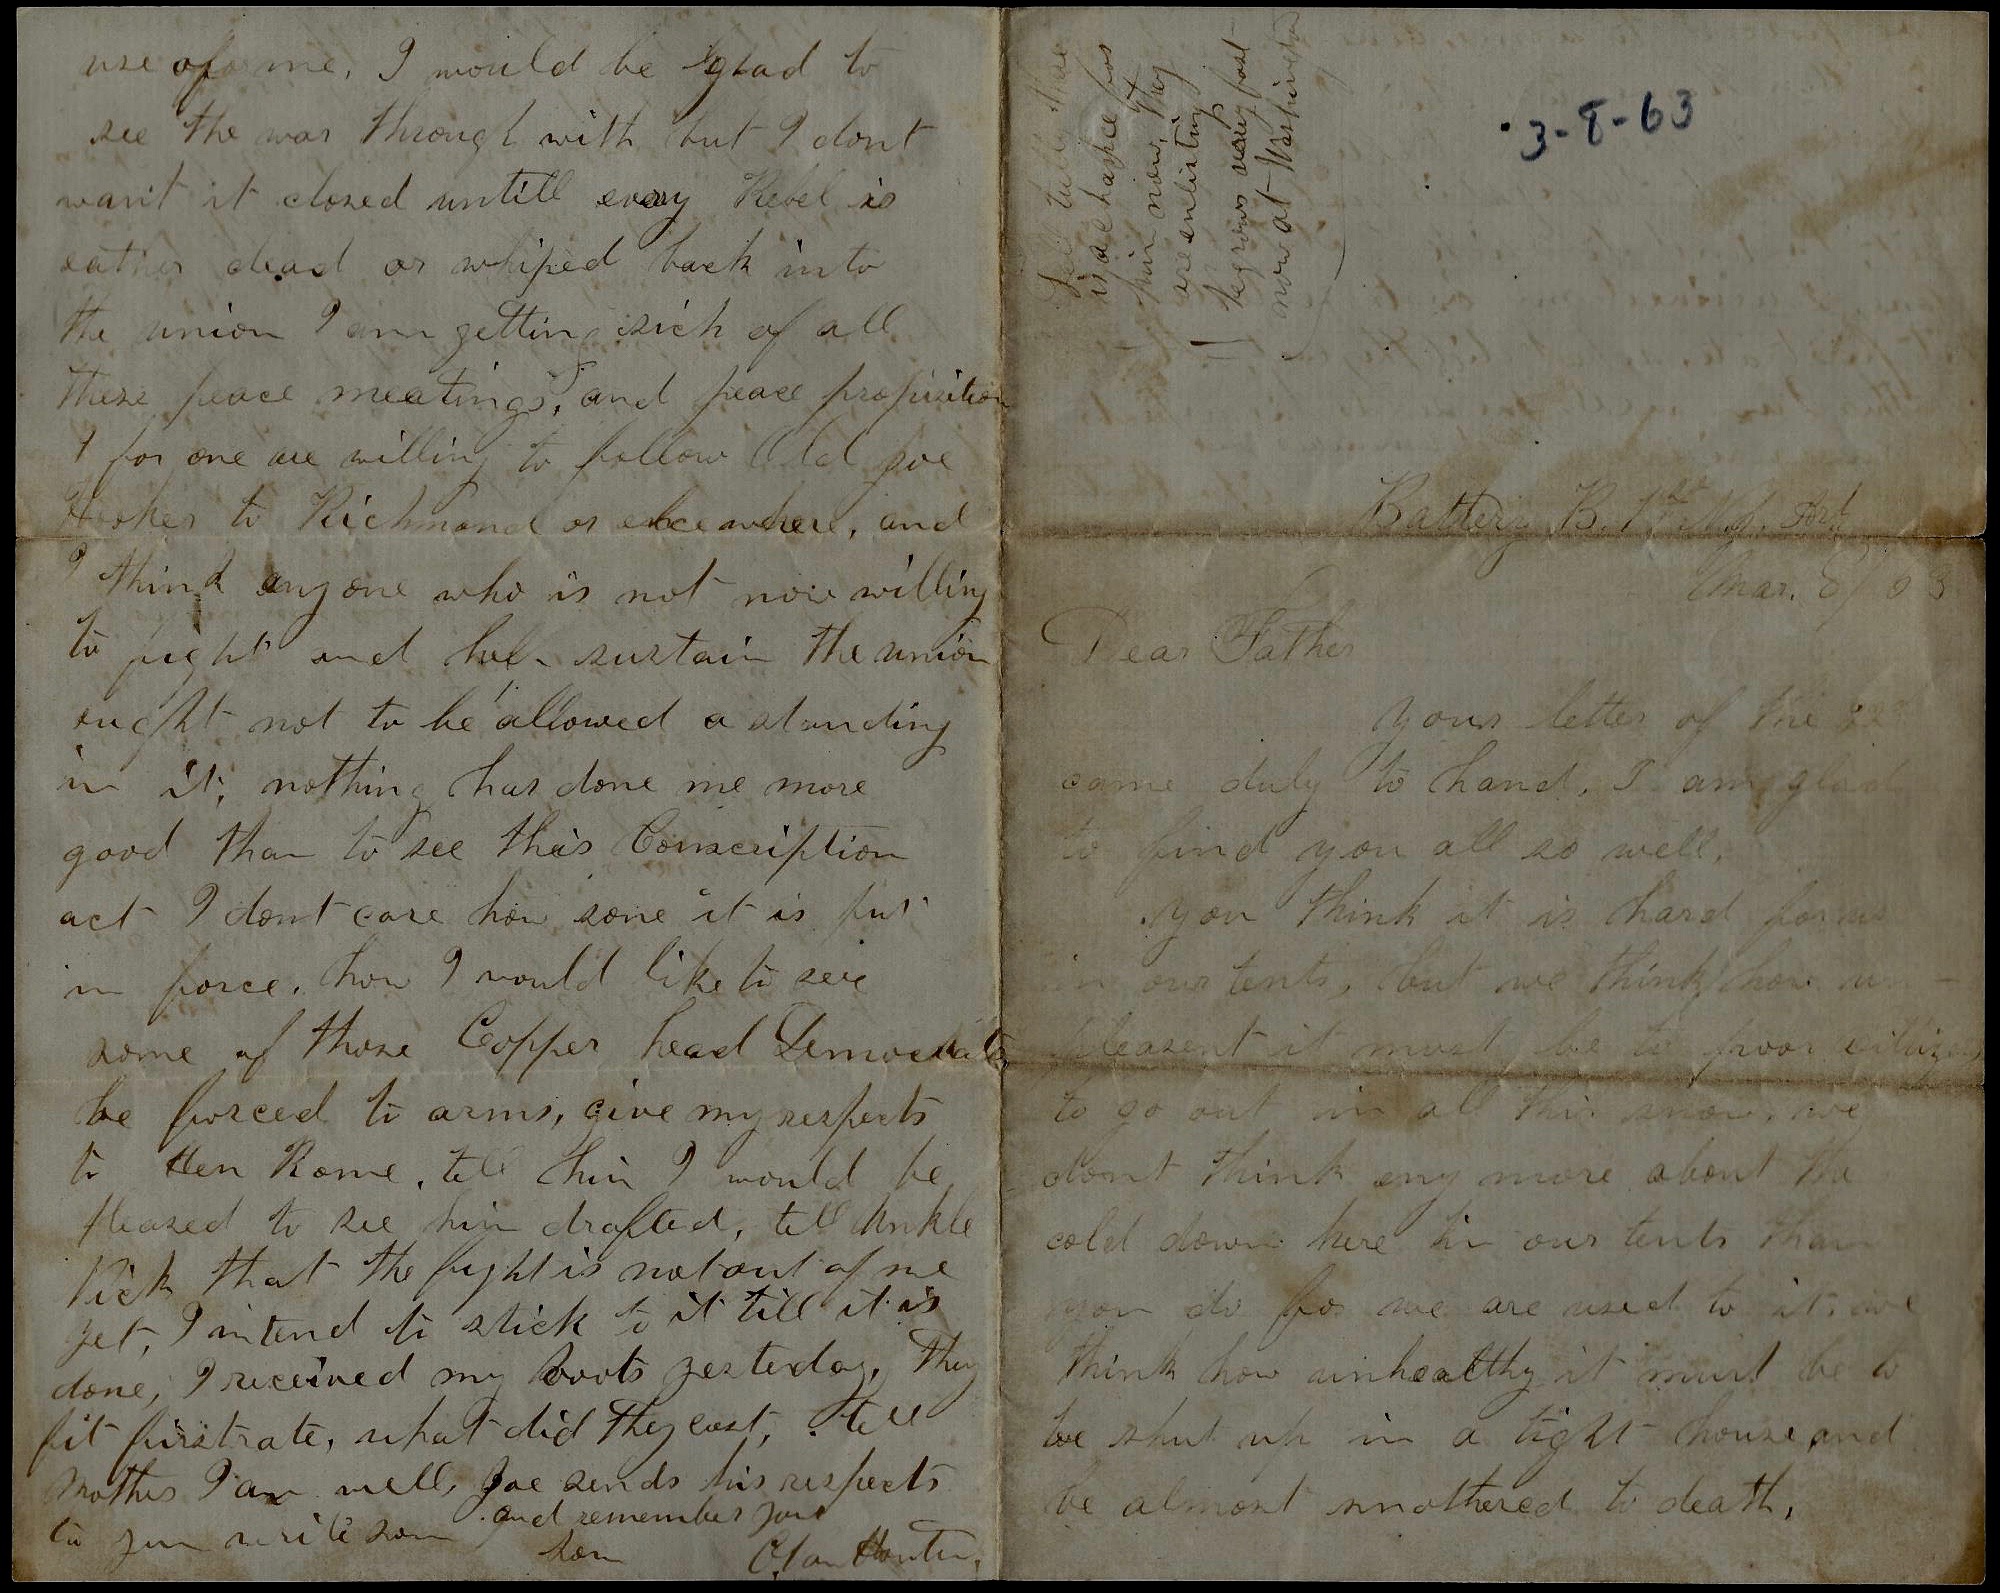 3-8-63
Battery B. 1st N.J. Art
Mar. 8/63
Dear Father
your letter of the
came duly to hand, I am glad
to find you all so well.
you think it is hard for us
in our tents, but we think how un-
pleasent it must be to poor citizens
to go out in all this snow, we
dont think eny more about the
cold down here in our tents than
you do for we are used to it. we
think how unhealthy it must be to
be shut up in a tight house and
be almost smothered to death,
use of me, I would be glad to
see the war through with but I dont
want it closed untill every Rebel is
eather dead or whiped back into
the union I am getting sick of all
these peace meetings, and peace proposition
I for one are willing to follow Old Joe
Hooker to Richmond or elcewhere, and
I think anyone who is not now willing
to fight and help sustain the union
ought not to be allowed a standing
in it, nothing has done me more
good than to see this Conscription
act I dont care how sone it is put
in force. how I would like to see
some of those Copper head Democrats
be forced to arms, give my respects
to Hen Rome, tell him I would be
pleased to see him drafted, tell Unkle
Dick that the fight is not out of me
yet, I intend to stick to it till it is
done, I received my boots yesterday, They
fit firstrate, what did they cost, tell
Mother I am well, Joe sends his respects
to you write soon and remember your
son C. Van Houten,
Tell there
is a chance for
him now, They
are enlisting
Negrows very fast
now at Washington